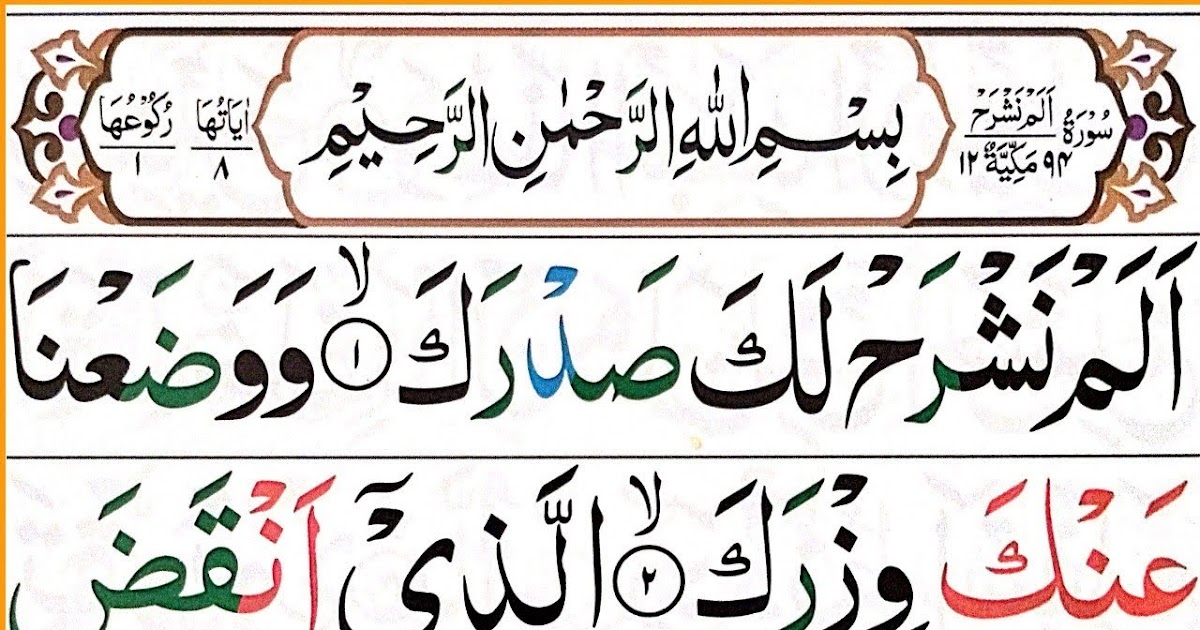 سُوْرَةُ اَلَمْ نَشْرَحْ
٩٤ مَكِّيَّةٌ ١٢
بِسْمِ اللّٰهِ الرَّحْمٰنِ الرَّحِيْمِ
اٰيَاتُهَا ٨
رُكُوْعُهَا ١
اَلَمْ نَشْرَحْ لَكَ صَدْرَكَ ۙ ١ وَوَضَعْنَا
عَنْكَ وِزْرَكَ ۙ ٢ الَّذِیْۤ اَنْقَضَ